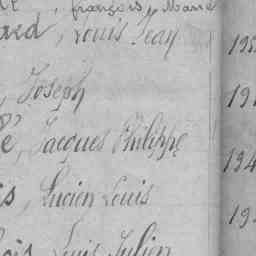 françois, Marie
ard, Louis Jean
, Joseph
é, Jacques Philippe
is, Lucien Louis
ois, Louis Julien
195
19
194
19